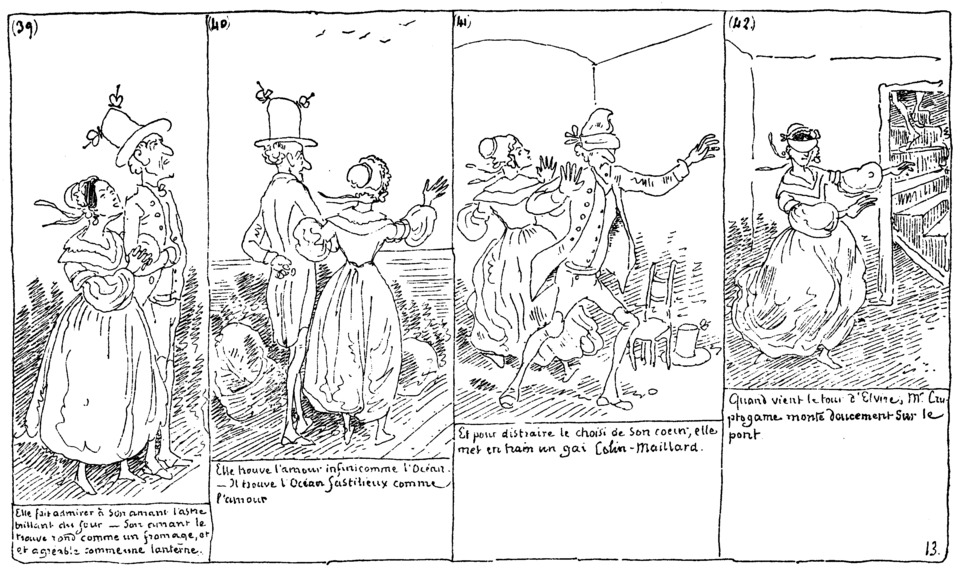 (39)
(40)
(41)
(42)
Elle fait admirer à son amant l'astre
brillant du jour — Son amant le
trouve rond comme un fromage, et
et agréable comme une lanterne.
Elle trouve l'amour infini comme l'Océan.
— Il trouve l'Océan fastidieux comme
l'amour
Et pour distraire le choisi de son coeur, elle
met en train un gai Colin-Maillard.
Quand vient le tour d'Elvire, Mr Cry
ptogame monte doucement sur le
pont
13.